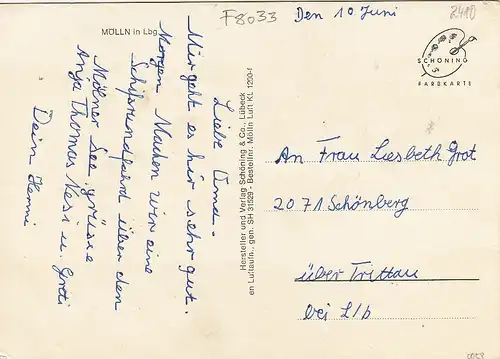 MÖLLN in Lbg
F8033
Den 10 Juni
2410
SCHÖNING
FARBKARTE
Liebe Oma.
Mir geht es hir sehr gut.
Morgen Machen wir eine
Schifsrundfahrd über den
Mölner See. grüsse
Anja Thomas Kesi u. Greti
Dein Henni
Hersteller und Verlag Schöning & Co., Lübeck
en Luftaufn., gen. SH 31529 - Bestellnr. Mölln Luft KL 1200-f
An Frau Liesbeth Grot
2071 Schönberg
über Trittau
bei L/b